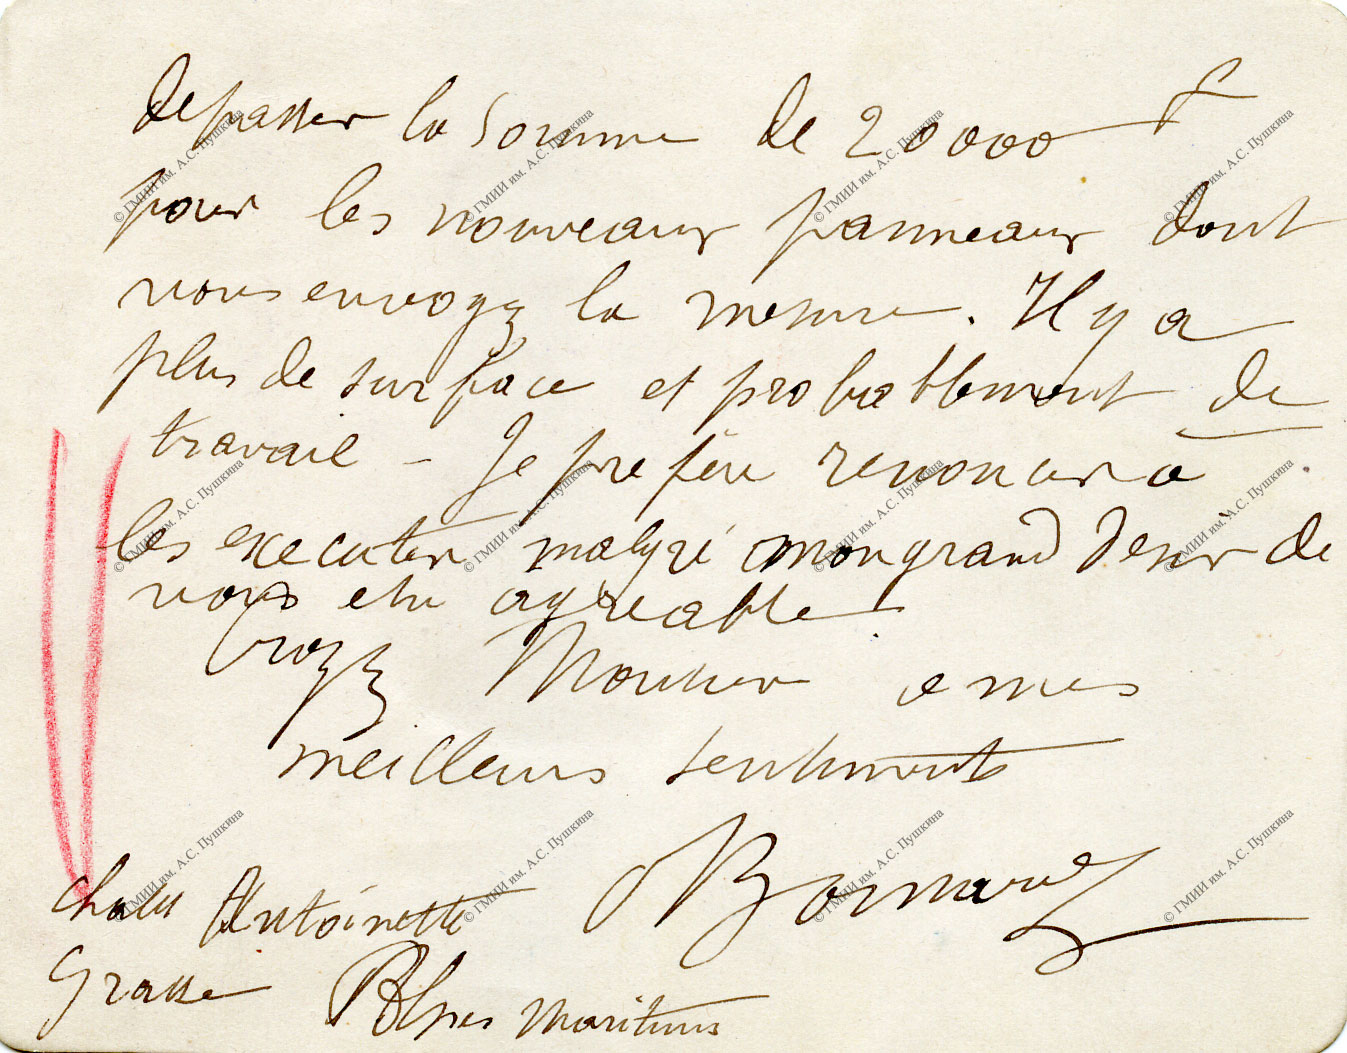 depasser la somme de 20000 f
pour les nouveaux panneaux dont
vous envoyez la mesure. Il y a
plus de surface et probablement de
travail – Je prefère renoncer à
les executer malgré mon grand desir de
vous etre agreable
Croyez Monsieur a mes
meilleurs sentiments
Bonnard
Chalet Antoinette
Grasse Alpes Maritimes
© ГМИИ им. А.С. Пушкина